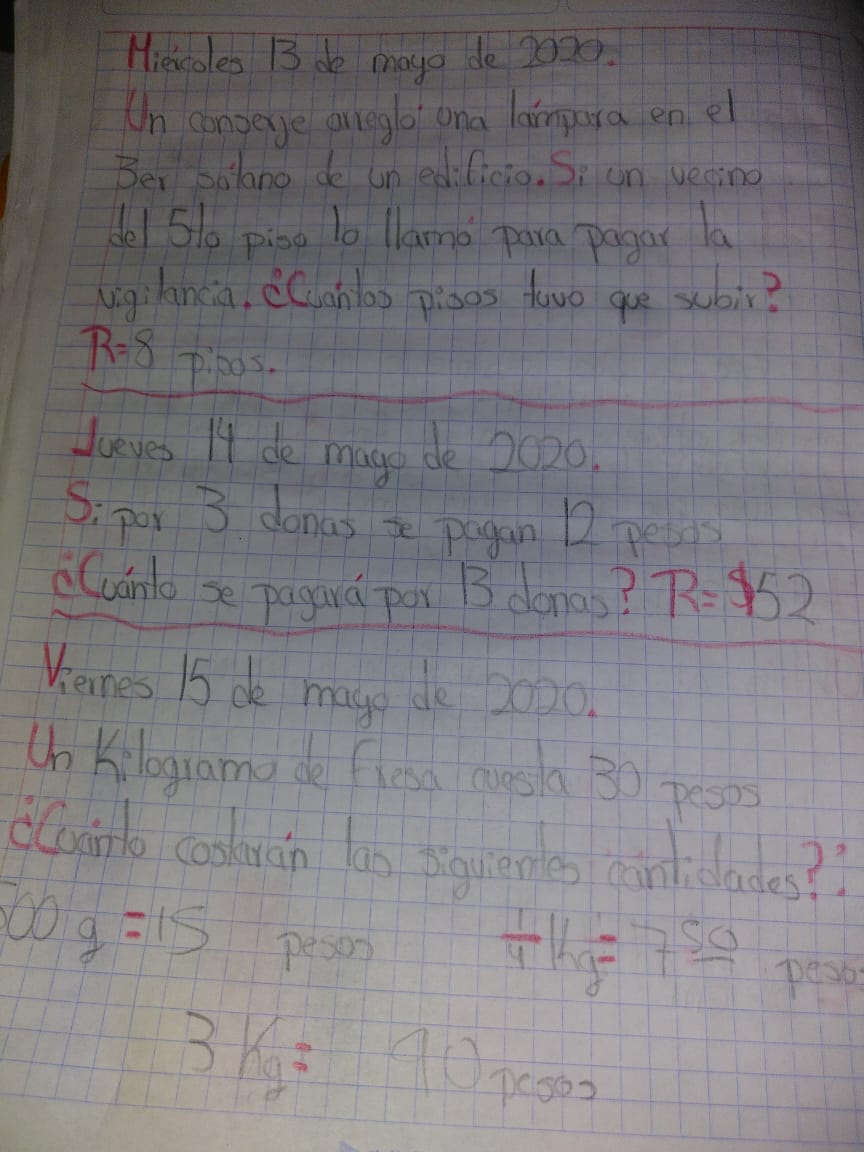 Miércoles 13 de mayo de 2020.
Un conserje arregló una lámpara en el
3er sótano de un edificio. Si un vecino
del 5to piso lo llamó para pagar la
vigilancia. ¿Cuántos pisos tuvo que subir?
R=8 pisos.
Jueves 14 de mayo de 2020.
Si por 3 donas se pagan 12 pesos
¿Cuánto se pagará por 13 donas? R=$52
Viernes 15 de mayo de 2020.
Un Kilogramo de fresa cuesta 30 pesos
¿Cuánto costarán las siguientes cantidades?:
500 g = 15 pesos 1/4 Kg = 7 50 pesos
3 Kg = 90 pesos